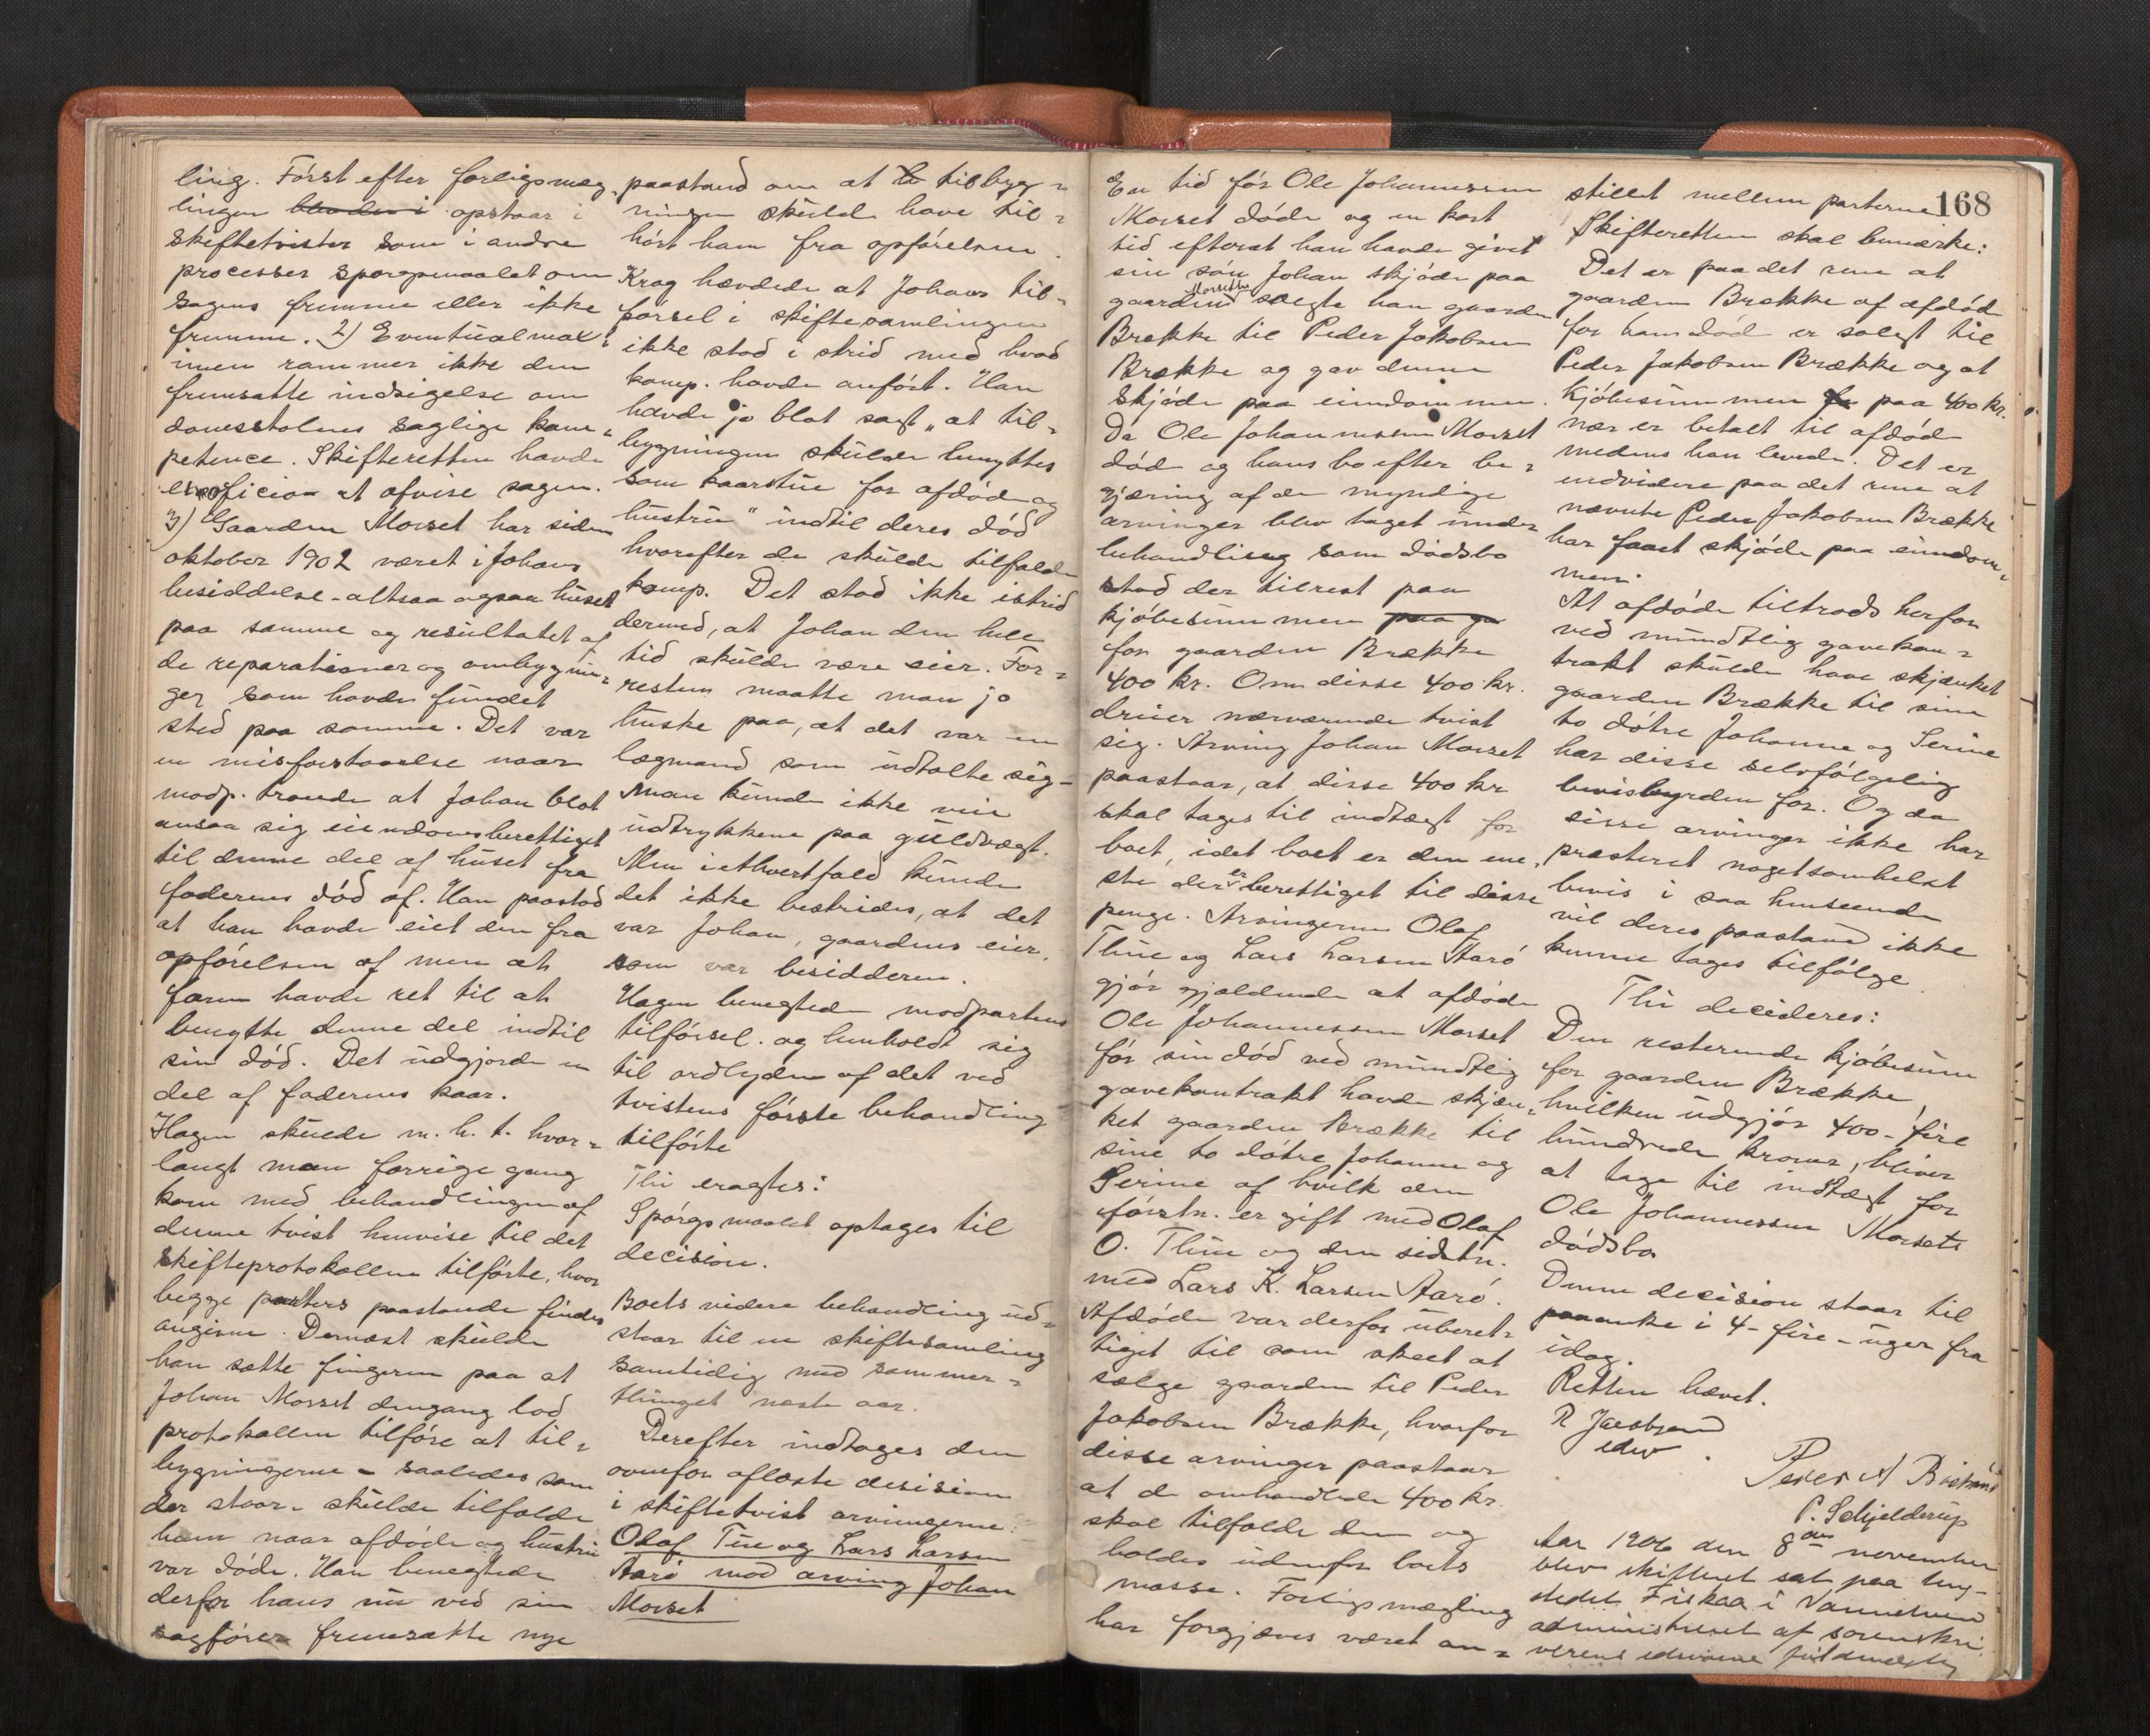 ling. Först efter forligsmæg-
lingen blandes i opstaar i
skiftetvister som i andre
processer spörgsmaalet om
sagens fremme eller ikke
fremme. 2) Eventualmax-
imen rammer ikke den
fremsatte indsigelse om
domsstolens saglige kom-
petence. Skifteretten havde
ex officio at afvise sagen.
3) Gaarden Morset har siden
oktober 1902 været i Johans
besiddelse - altsaa ogsaa huset
paa samme og resultatet af
de reparationer og ombygnin-
ger som havde fundet
sted paa somme. Det var
en misforstaaelse naar
modp. troede at Johan blot
ansaa sig eiendomsberettiget
til denne del af huset fra
faderens död af. Han paastod
at han havde eiet den fra
opförelsen af men at
faren havde ret til at
benytte denne del indtil
sin död. Det udgjorde en
del af faderens kaar.
Hagen skulde m. h. t. hvor-
langt man forrige gang
kom med behandlingen af
denne tvist henvise til det
skifteprotokollen tilförte, hvor
begge parters paastande findes
angivne. Dernæst skulde
han sætte fingeren paa at
Johan Morset dengang lod
protokollen tilföre at til-
bygningerne - saaledes som
der staar - skulde tilfalde
ham naar afdöde og hustru
var döde. Han benegtede
derfor hans nu ved sin
sagförer fremsatte nye
paastand om at tilbyg-
ningen skulde have til-
hört ham fra opförelsen.
Krog hævdede at Johans til-
försel i skiftesamlingen
ikke stod i strid med hvad
komp. havde anfört. Han
havde jo blot sagt "at til-
bygningen skulde benyttes
som kaarstue for afdöde og
hustru" indtil deres död
hvorefter de skulde tilfalde
komp. Det stod ikke istrid
dermed, at Johan den hele
tid skulde være eier. For-
resten maatte man jo
huske paa, at det var en
lægmand som udtalte sig -
Man kunde ikke veie
udtrykkene paa guldvægt.
Men i ethvertfald kunde
det ikke bestrides, at det
var Johan, gaardens eier,
som var besidderen.
Hagen benegtede modpartens
tilförsel. og henholdt sig
til ordlyden af det ved
tvistens förste behandling
tilförte
Thi eragtes:
Spörgsmaalet optages til
decision.
Boets videre behandling ud-
staar til en skiftesamling
samtidig med sommer-
thinget næste aar.
Derefter indtages den
ovenfor aflæste decision
i skiftetvist arvingerne:
Olaf Tue og Lars Larsen
Aarö mod arving Johan
Morset
168
En tid för Ole Johannessen
Morset döde og en kort
tid efterat han havde givet
sin sön Johan skjöde paa
gaarden Morset solgte han gaarden
Brække til Peder Jakobsen
Brække og gav denne
skjöde paa eiendommen.
Da Ole Johannessen Morset
död og hans bo efter be-
gjæring af de myndige
arvinger blev taget under
behandling som dödsbo
stod der tilrest paa
kjöbesummen paa ga
for gaarden Brække
400 kr. Om disse 400 kr.
dreier nærværende tvist
sig. Arving Johan Morset
paastaar, at disse 400 kr
skal tages til indtægt for
boet, idet boet er den ene-
ste der er berettiget til disse
penge. Arvingerne Olaf
Thue og Lars Larsen Aarö
gjör gjældende at afdöde
Ole Johannessen Morset
för sin död ved mundtlig
gavekontrakt havde skjæn-
ket gaarden Brække til
sine to dötre Johanne og
Serine af hvilk den
förstn. er gift med Olaf
O. Thue og den sidstn.
med Lars K. Larsen Aarö.
Afdöde var derfor uberet-
tiget til som skeet at
sælge gaarden til Peder
Jakobsen Brække, hvorfor
disse arvinger paastaar
at de omhandlede 400 kr.
skal tilfalde dem og
holdes udenfor boets
masse. Forligsmægling
har forgjæves været an-
stillet mellem parterne
Skifteretten skal bemærke:
Det er paa det rene at
gaarden Brække af afdöde
for hans död er solgt til
Peder Jakobsen Brække og at
kjöbesummen paa 400 kr.
nær er betalt til afdöde
medens han levede. Det er
endvidere paa det rene at
nævnte Peder Jakobsen Brække
har faaet skjöde paa eiendom-
men.
At afdöde tiltrods herfor
ved mundtlig gavekon-
trakt skulde have skjænket
gaarden Brække til sine
to dötre Johanne og Serine
har disse selvfölgelig
bevisbyrden for. Og da
disse arvinger ikke har
præsteret nogetsomhelst
bevis i saa henseende
vil deres paastand ikke
kunne tages tilfölge.
Thi decideres:
Den resterende kjöbesum
for gaarden Brække,
hvilken udgjör 400 - fire
hundrede kroner, bliver
at tage til indtægt for
Ole Johannessen Morsets
dödsbo.
Denne decision staar til
paaanke i 4 - fire - uger fra
idag.
Retten hævet.
R Jacobsen
edsv.
Peder A
P. Schjelderup
Aar 1906 den 8de november
blev skifteret sat paa thing-
stedet Fiskaa i Vannelven
administreret af sorenskri-
verens edsvorne fuldmægtig